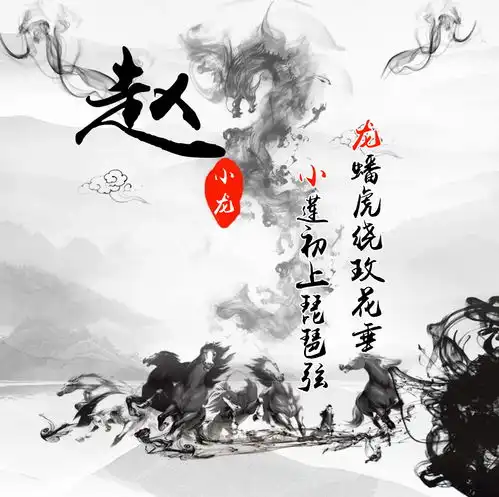 赵
小龙
小莲初上琵琶弦
龙蟠虎绕玫花垂